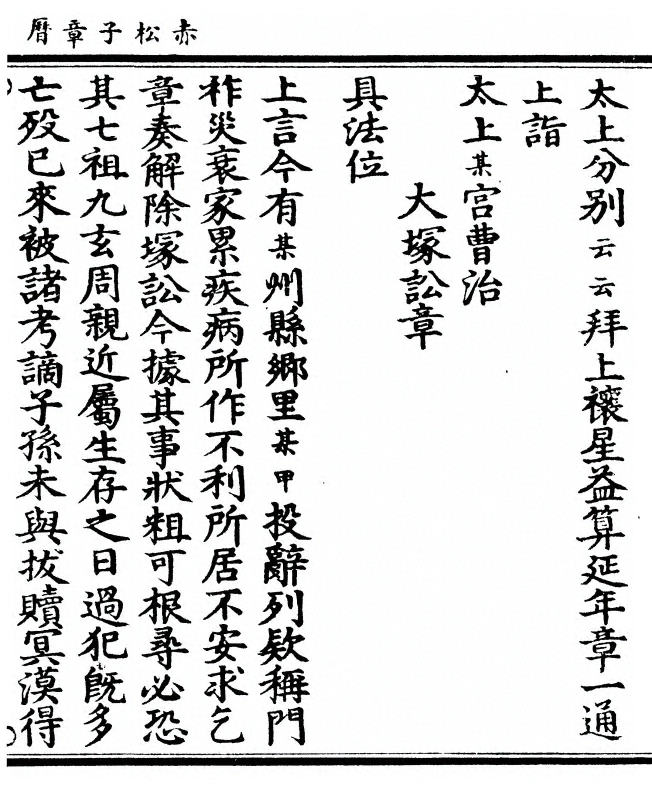 赤松子章曆
太上分别云云拜上禳星益算延年章一通
上詣
太上某宮曹治
大塚訟章
具法位
上言今有某州縣鄉里某甲投辭列欵稱門
祚災衰家累疾病所作不利所居不安求乞
章奏解除塚訟今據其事狀粗可根尋必恐
其七祖九玄周親近屬生存之日過犯旣多
亡殁已來被諸考謫子孫未與拔贖冥漠得